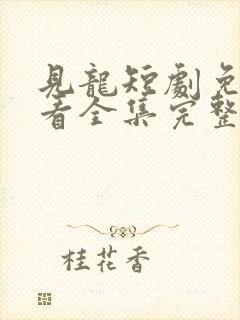 見龍短劇免
看全集完整
桂花香